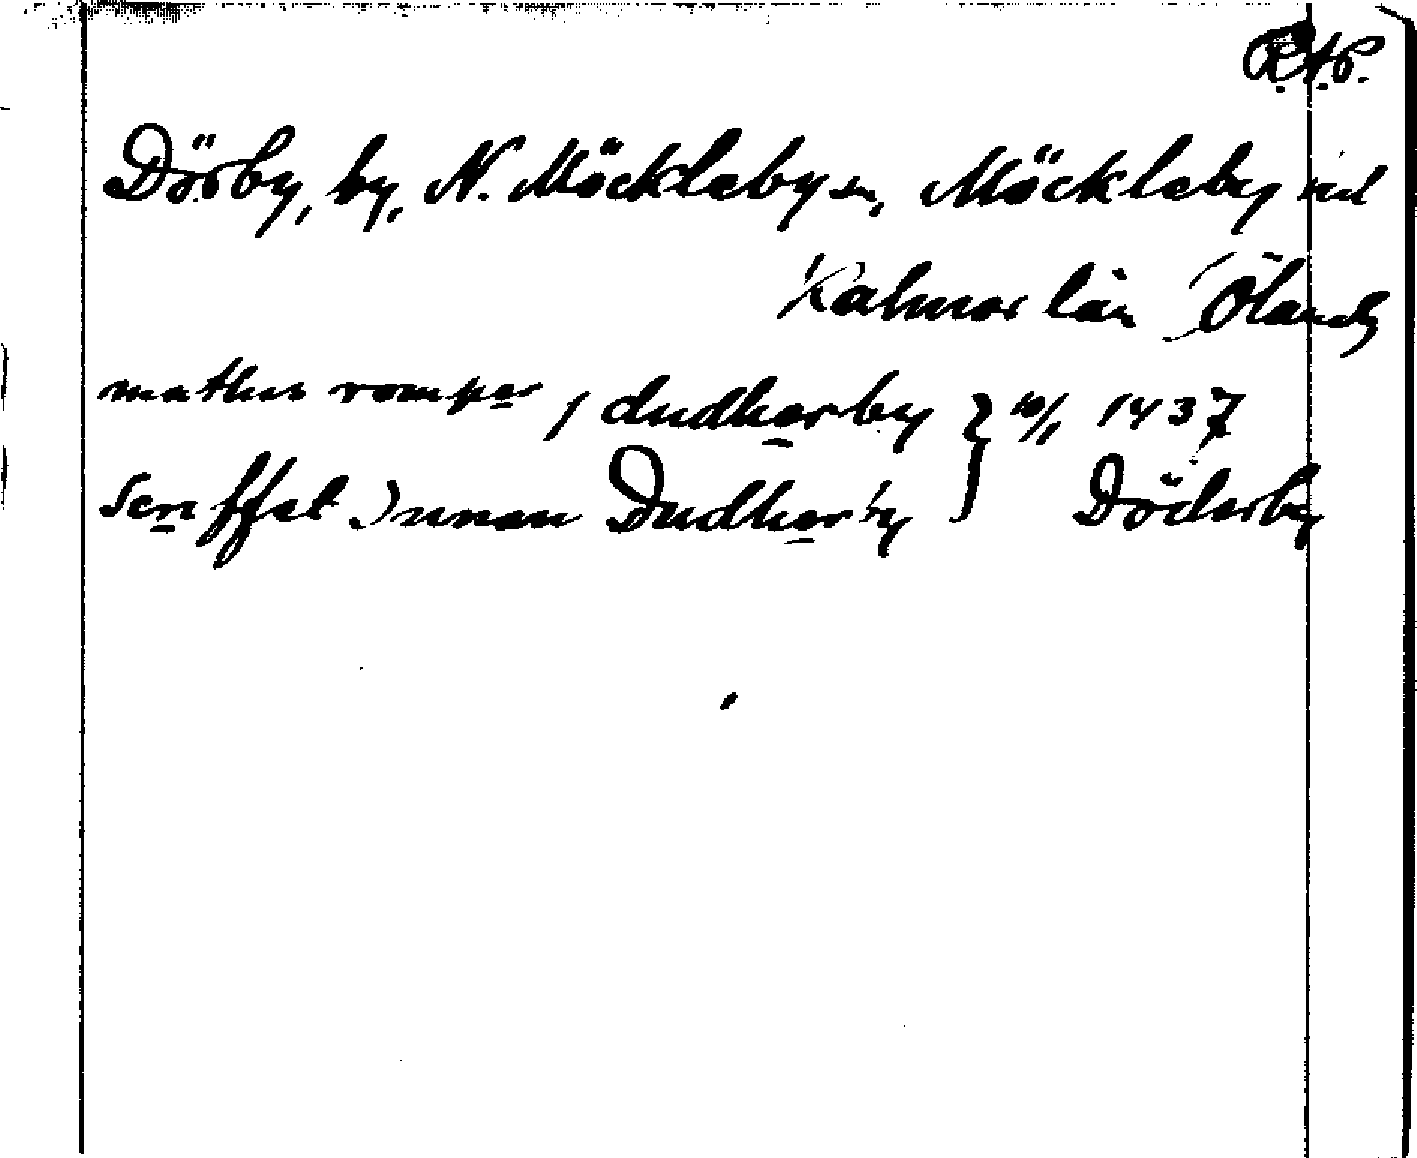 R.A.P.
Dörby, by, N. Möckleby sn, Möckleby hd
Kalmar län (Öland)
mathis romper j dudherby } 10/1 1437
Scriffet Innan Dudherby } Döderby